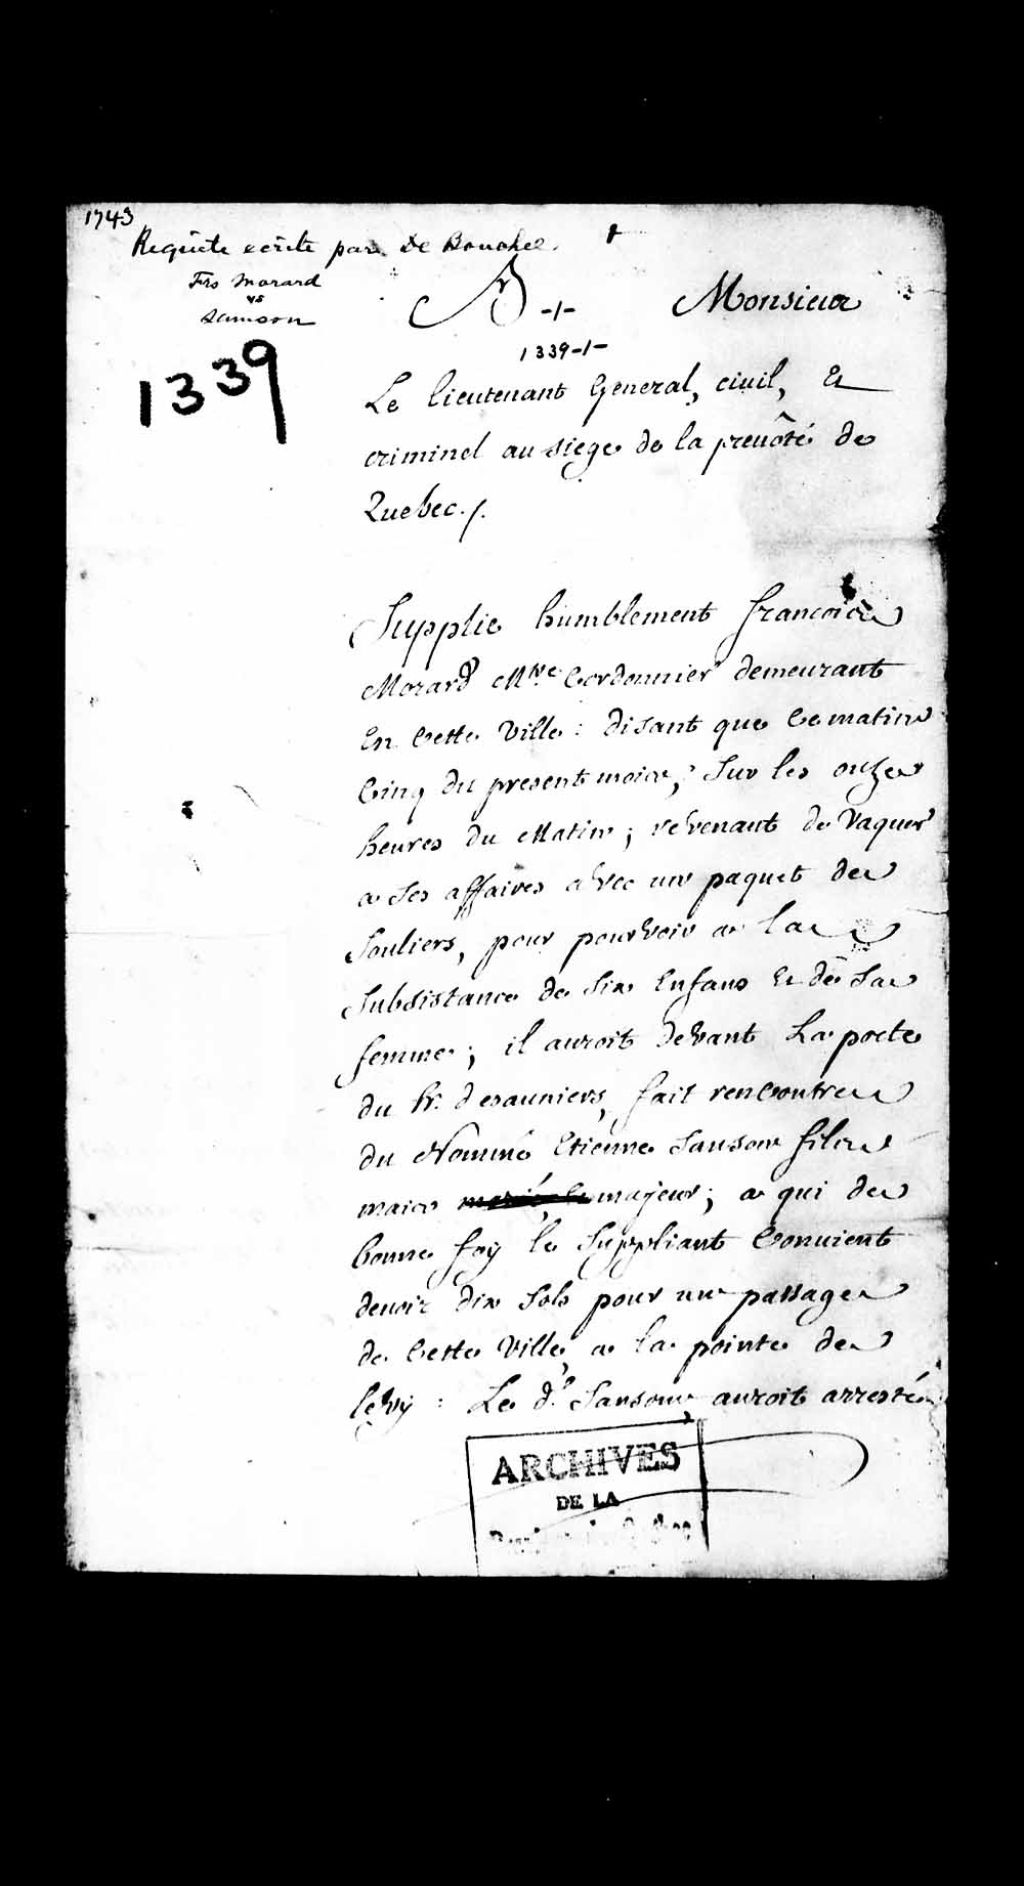 1743
Requête écrite par De Bouchel.
Frs Morard
vs
Samson
A -1- Monsieur
1339-1-
1339
Le lieutenant General, civil, Et
criminel au siege de la prevôté de
Quebec ./.
Supplie humblement francois
Morard Mtre Cordonnier demeurant
En Cette Ville : disant que Ce matin
Cinq du present mois, Sur les onze
heures du Matin ; revenant de Vaquer
a Ses affaires avec un paquet de
Souliers, pour pourvoir a la
Subsistance de Six Enfans Et de Sa
femme ; il auroit devant La porte
du Sr. desauniers, fait rencontre
du Nommé Etienne Sanson fils
mais majeur ; a qui de
bonne foy le Suppliant Convient
devoir dix Sols pour un passage
de Cette Ville, a la pointe de
levy : Le dt. Sanson, auroit arresté
ARCHIVES
DE LA